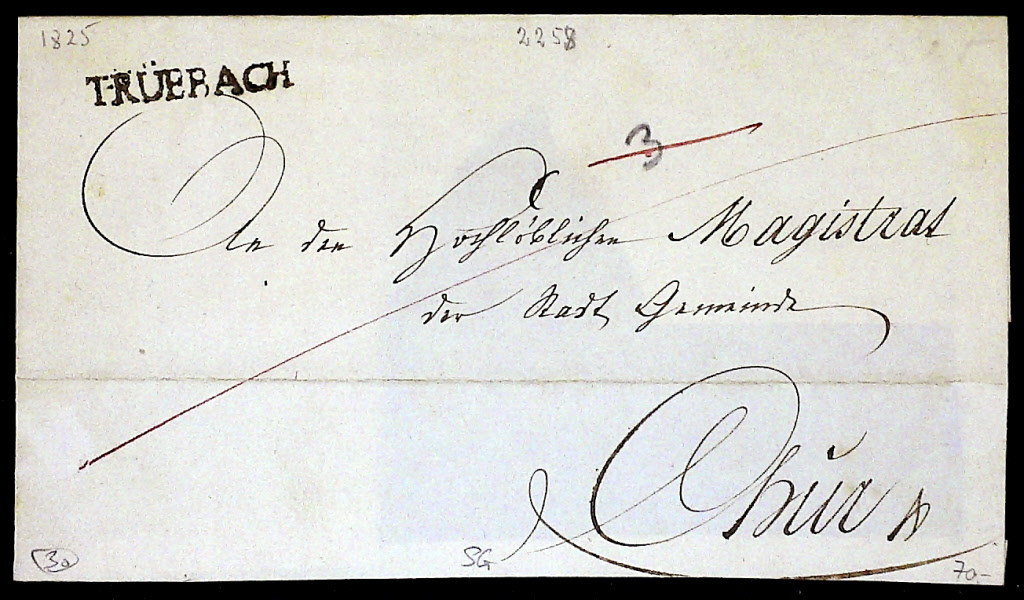 1825
2258
TRÜEBACH
3
An den Hochlöblichen Magistrat
der Stadt Gemeinde
Chur
30
SG
70,-